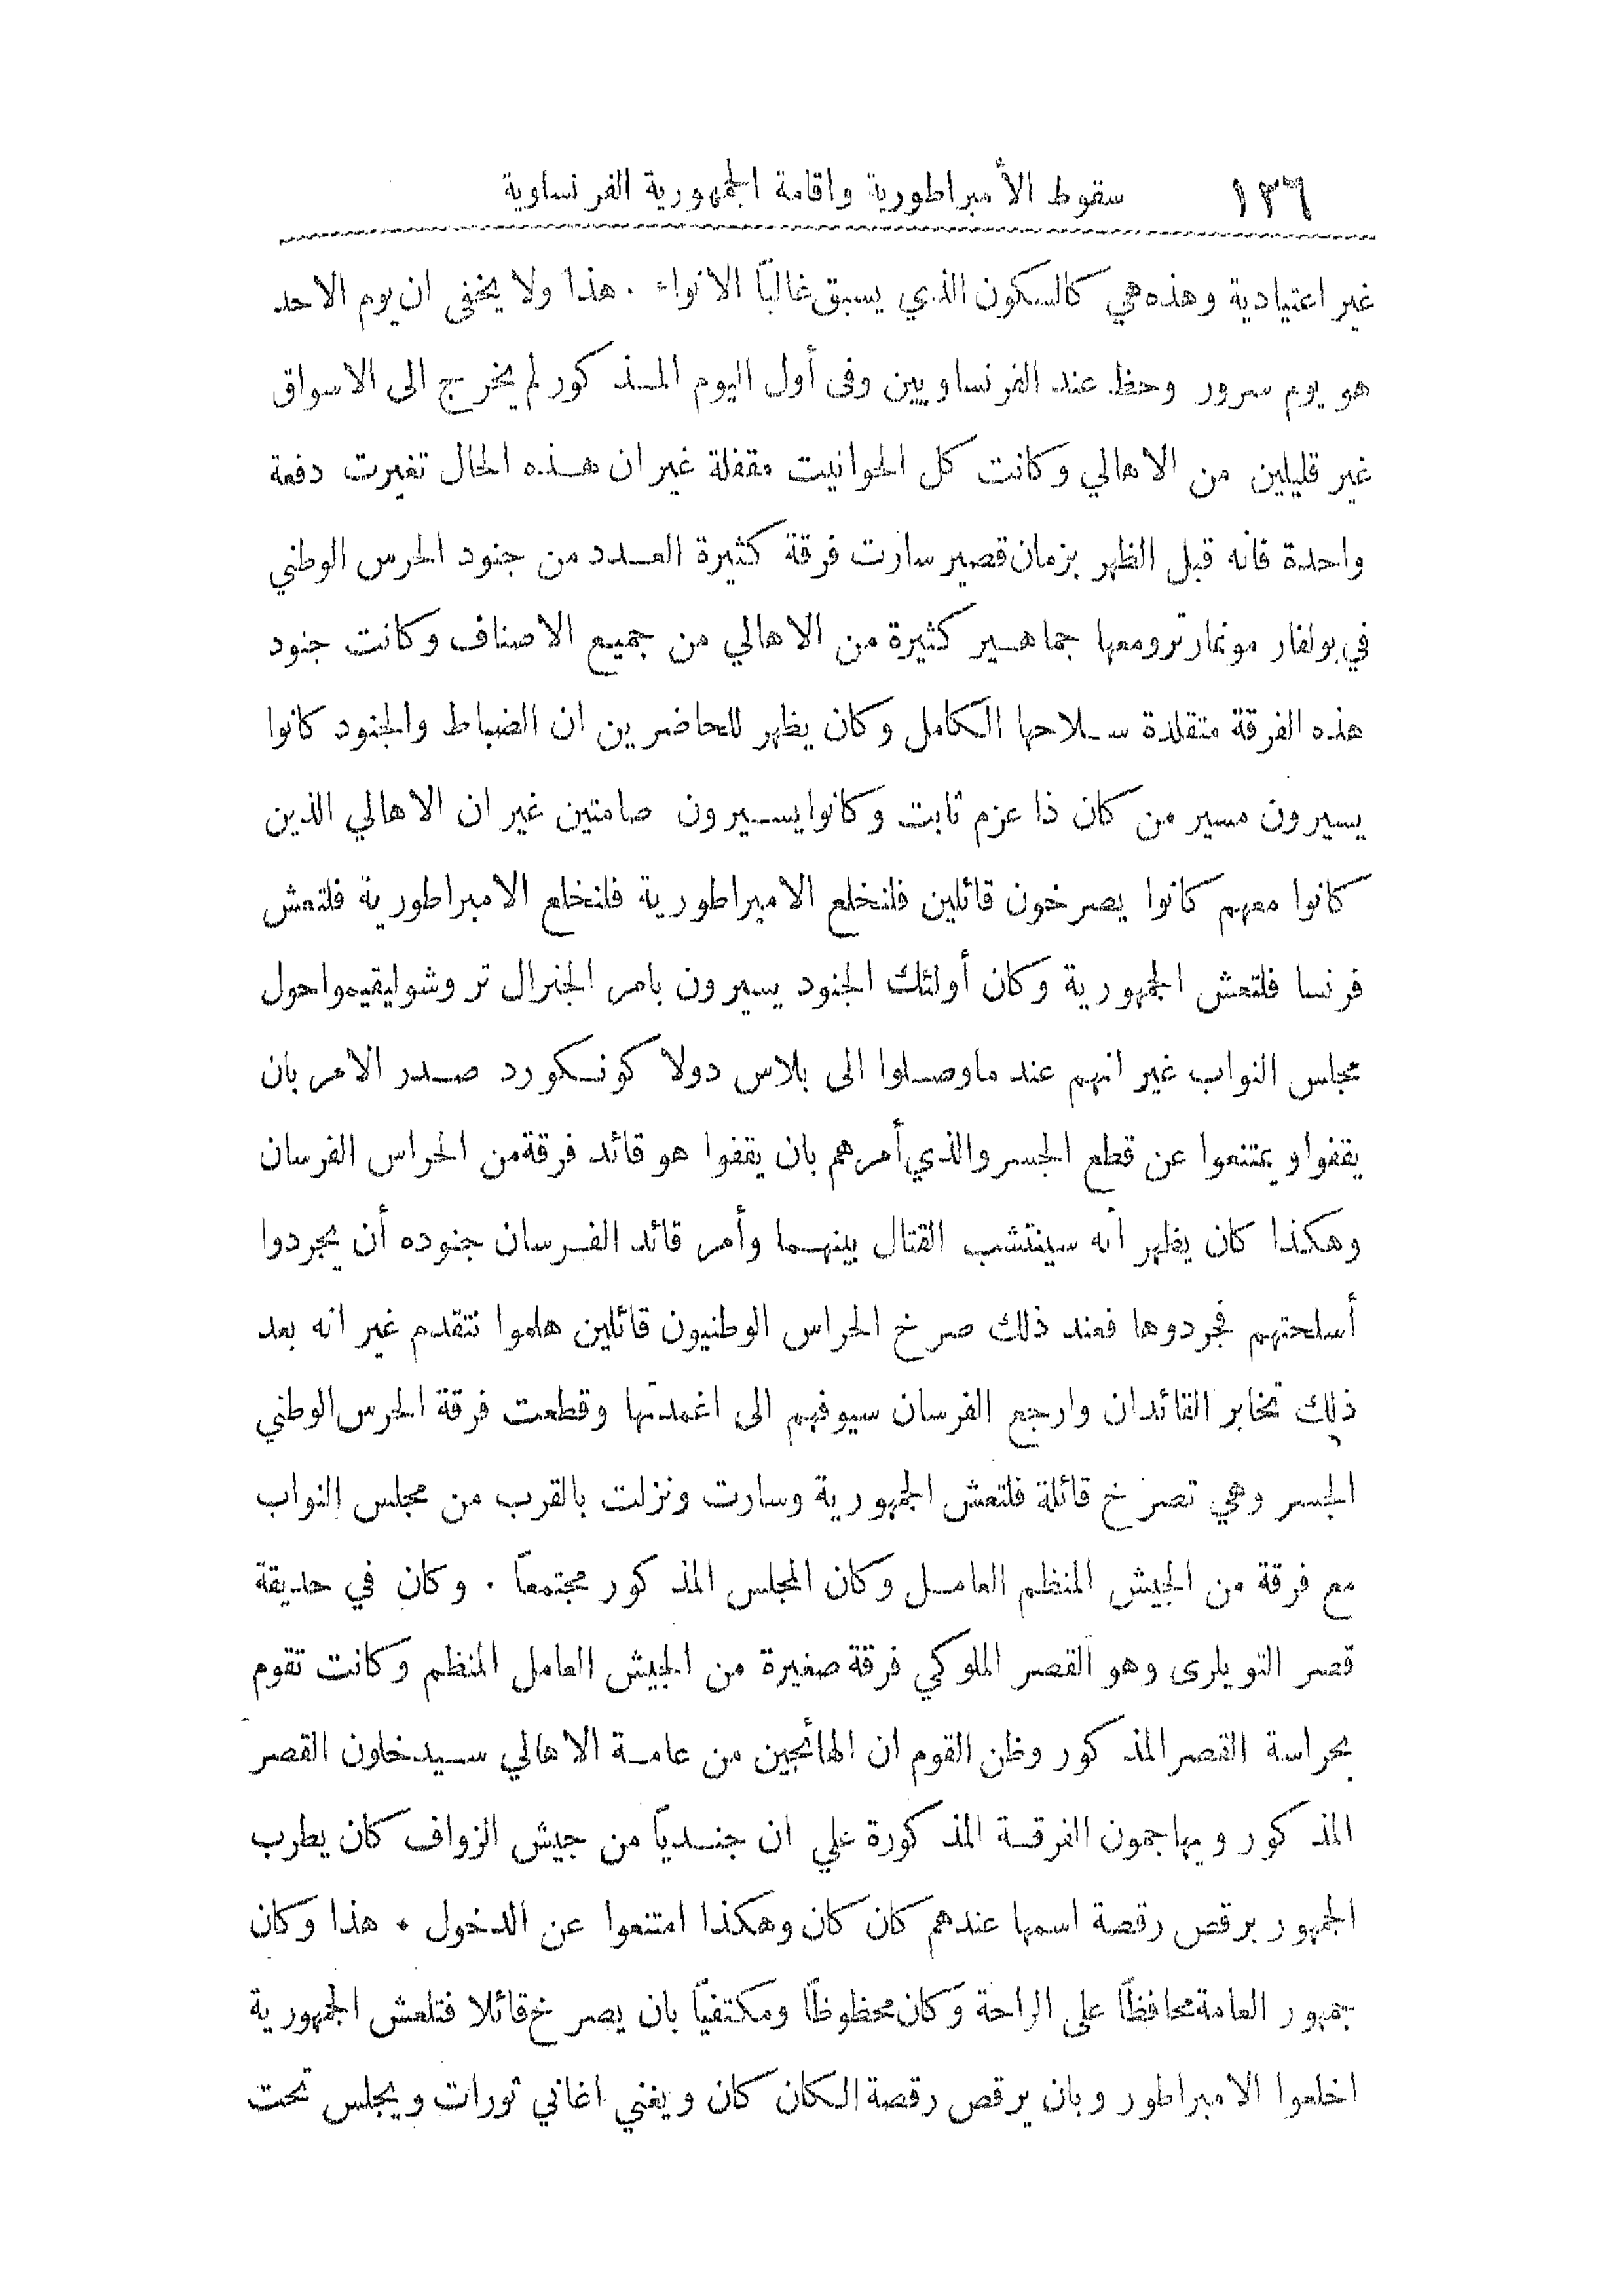 ١٣٦ سقوط الأمبراطورية واقامة الجمهورية الفرنساوية
غير اعتيادية وهذه هي كالسكون الذي يسبق غالباً الانواء . هذا ولا يخفى ان يوم الاحد
هو يوم سرور وحظ عند الفرنساويين وفى أول اليوم المذكور لم يخرج الى الاسواق
غير قليلين من الاهالي وكانت كل الحوانيت مقفلة غير ان هذه الحال تغيرت دفعة
واحدة فانه قبل الظهر بزمان قصير سارت فرقة كثيرة العدد من جنود الحرس الوطني
في بولفار مونمارتر ومعها جماهير كثيرة من الاهالي من جميع الاصناف وكانت جنود
هذه الفرقة متقلدة سلاحها الكامل وكان يظهر للحاضرين ان الضباط والجنود كانوا
يسيرون مسير من كان ذا عزم ثابت وكانوا يسيرون صامتين غير ان الاهالي الذين
كانوا معهم كانوا يصرخون قائلين فلتخلع الامبراطورية فلتخلع الامبراطورية فلتعش
فرنسا فلتعش الجمهورية وكان أولئك الجنود يسيرون بامر الجنرال تروشو ليقيموا حول
مجلس النواب غير انهم عند ما وصلوا الى بلاس دولا كونكورد صدر الامر بان
يقفوا ويمتنعوا عن قطع الجسر والذي أمرهم بان يقفوا هو قائد فرقة من الحراس الفرسان
وهكذا كان يظهر أنه سينتشب القتال بينهما وأمر قائد الفرسان جنوده أن يجردوا
أسلحتهم فجردوها فعند ذلك صرخ الحراس الوطنيون قائلين هلموا نتقدم غير انه بعد
ذلك تخابر القائدان وارجع الفرسان سيوفهم الى اغمدتها وقطعت فرقة الحرس الوطني
الجسر وهي تصرخ قائلة فلتعش الجمهورية وسارت ونزلت بالقرب من مجلس النواب
مع فرقة من الجيش المنظم العامل وكان المجلس المذكور مجتمعاً . وكان في حديقة
قصر التويلرى وهو القصر الملوكي فرقة صغيرة من الجيش العامل المنظم وكانت تقوم
بحراسة القصر المذكور وظن القوم ان الهائجين من عامة الاهالي سيدخلون القصر
المذكور ويهاجمون الفرقة المذكورة علي ان جندياً من جيش الزواف كان يطرب
الجمهور برقص رقصة اسمها عندهم كان كان وهكذا امتنعوا عن الدخول . هذا وكان
جمهور العامة محافظاً على الراحة وكان محظوظاً ومكتفياً بان يصرخ قائلا فتلعش الجمهورية
اخلعوا الامبراطور وبان يرقص رقصة الكان كان ويغني اغاني ثورات ويجلس تحت